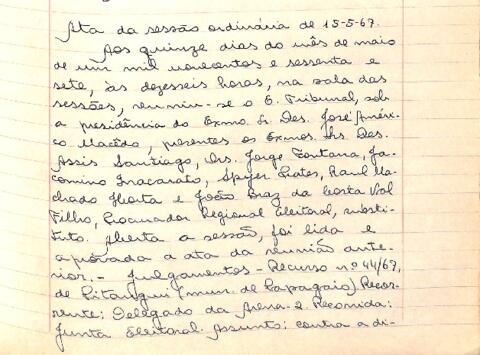 Ata da sessão ordinária de 15-5-67.
Aos quinze dias do mês de maio
de um mil novecentos e sessenta e
sete, às dezesseis horas, na sala das
sessões, reuniu-se o E. Tribunal, sob
a presidência do Exmo. Sr. Des. José Améri-
co Macêdo, presentes os Exmos. Srs. Des.
Assis Santiago, Drs. Jorge Fontana, Ja-
comino Inacarato, Speyer Prates, Raul Ma-
chado Horta e João Braz da Costa Val
Filho, Procurador Regional Eleitoral, substi-
tuto. Aberta a sessão, foi lida e
aprovada a ata da reunião ante-
rior.- Julgamentos - Recurso nº 44/67,
de Pitangui (mun. de Papagaio) Recor-
rente: Delegado da Arena-2. Recorrida:
Junta Eleitoral. Assunto: contra a di-